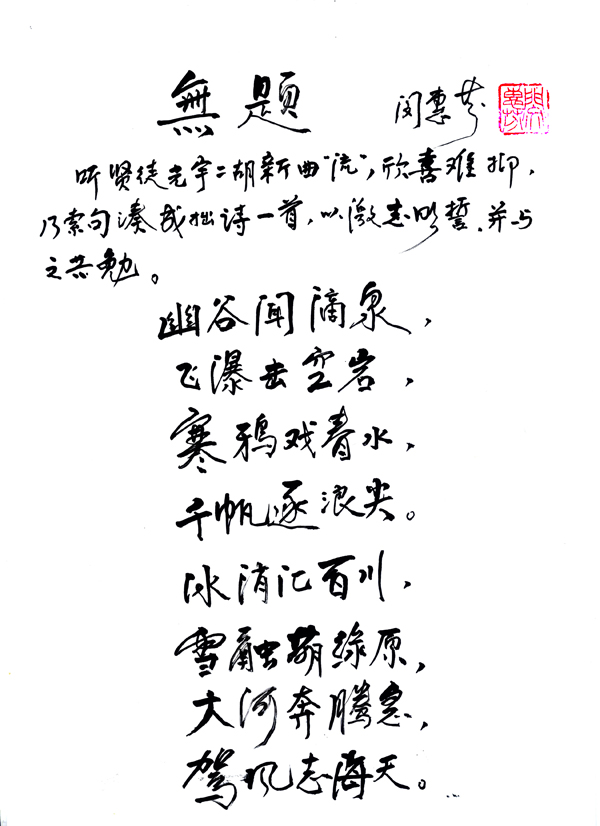 無題 闵惠芬
听贤徒光宇二胡新曲“流”，欣喜难抑，
乃索句凑成拙诗一首，以激志明誓，并与
之共勉。
幽谷闻滴泉，
飞瀑击空岩，
寒鸦戏春水，
千帆逐浪尖。
冰消汇百川，
雪融萌绿原，
大河奔腾急，
驾风志海天。